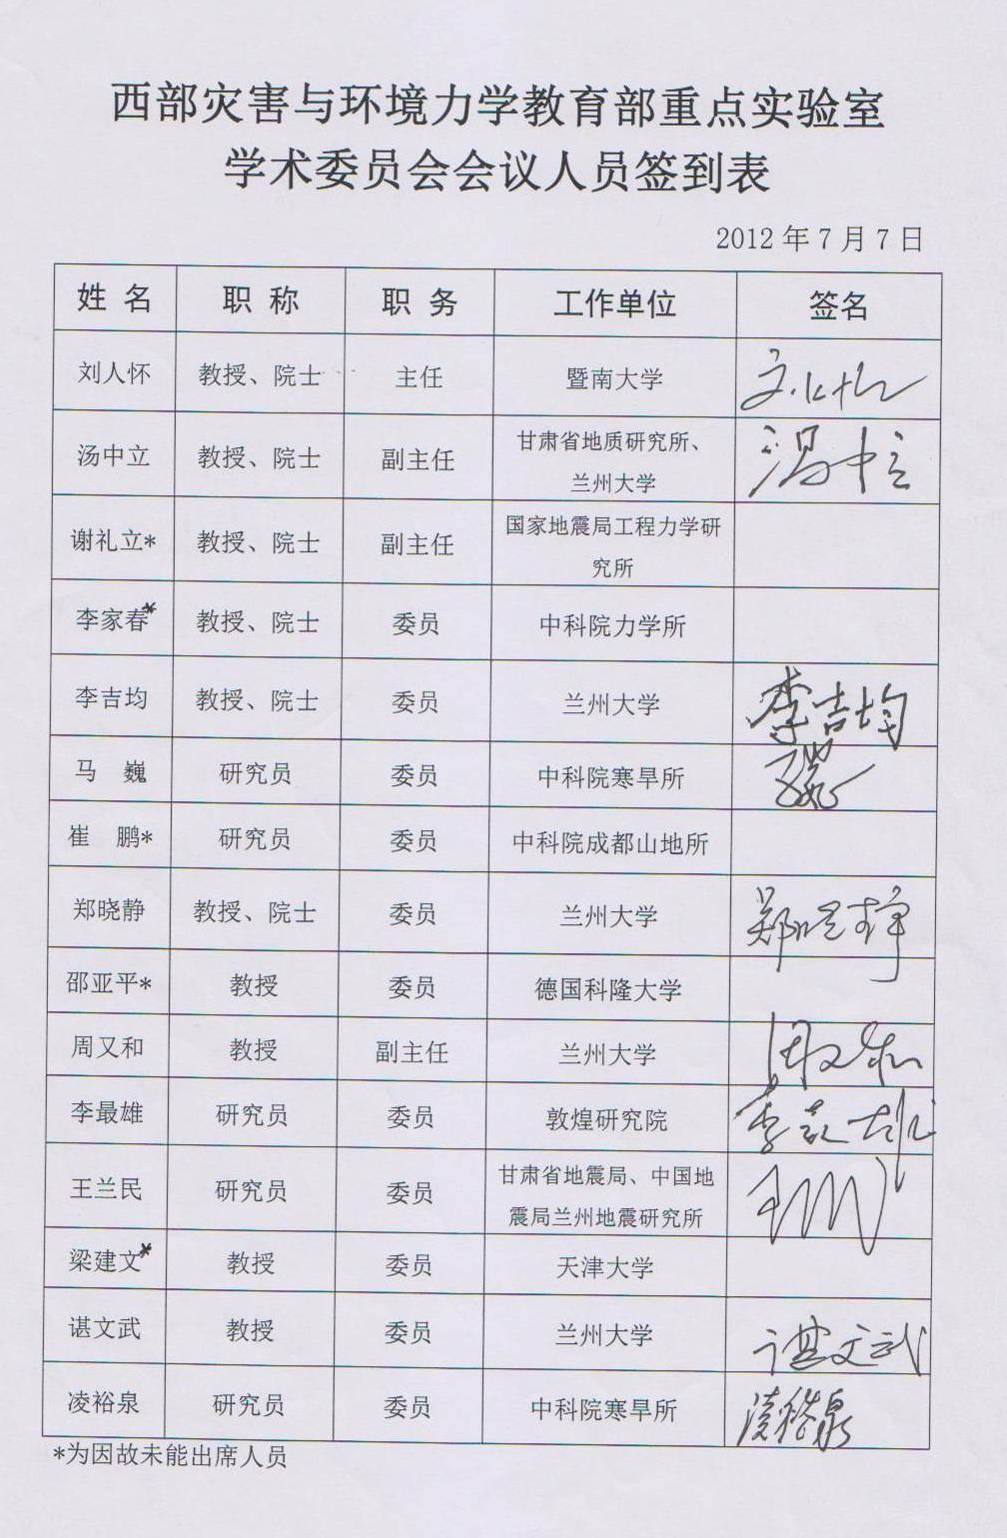 西部灾害与环境力学教育部重点实验室
学术委员会会议人员签到表
2012 年 7 月 7 日
姓 名 职 称 职 务 工作单位 签名
刘人怀 教授、院士 主任 暨南大学 刘人怀
汤中立 教授、院士 副主任 甘肃省地质研究所、
兰州大学 汤中立
谢礼立* 教授、院士 副主任 国家地震局工程力学研
究所
李家春* 教授、院士 委员 中科院力学所
李吉均 教授、院士 委员 兰州大学 李吉均
马 巍 研究员 委员 中科院寒旱所 马巍
崔 鹏* 研究员 委员 中科院成都山地所
郑晓静 教授、院士 委员 兰州大学 郑晓静
邵亚平* 教授 委员 德国科隆大学
周又和 教授 副主任 兰州大学 周又和
李最雄 研究员 委员 敦煌研究院 李最雄
王兰民 研究员 委员 甘肃省地震局、中国地
震局兰州地震研究所
梁建文* 教授 委员 天津大学
谌文武 教授 委员 兰州大学 谌文武
凌裕泉 研究员 委员 中科院寒旱所 凌裕泉
*为因故未能出席人员